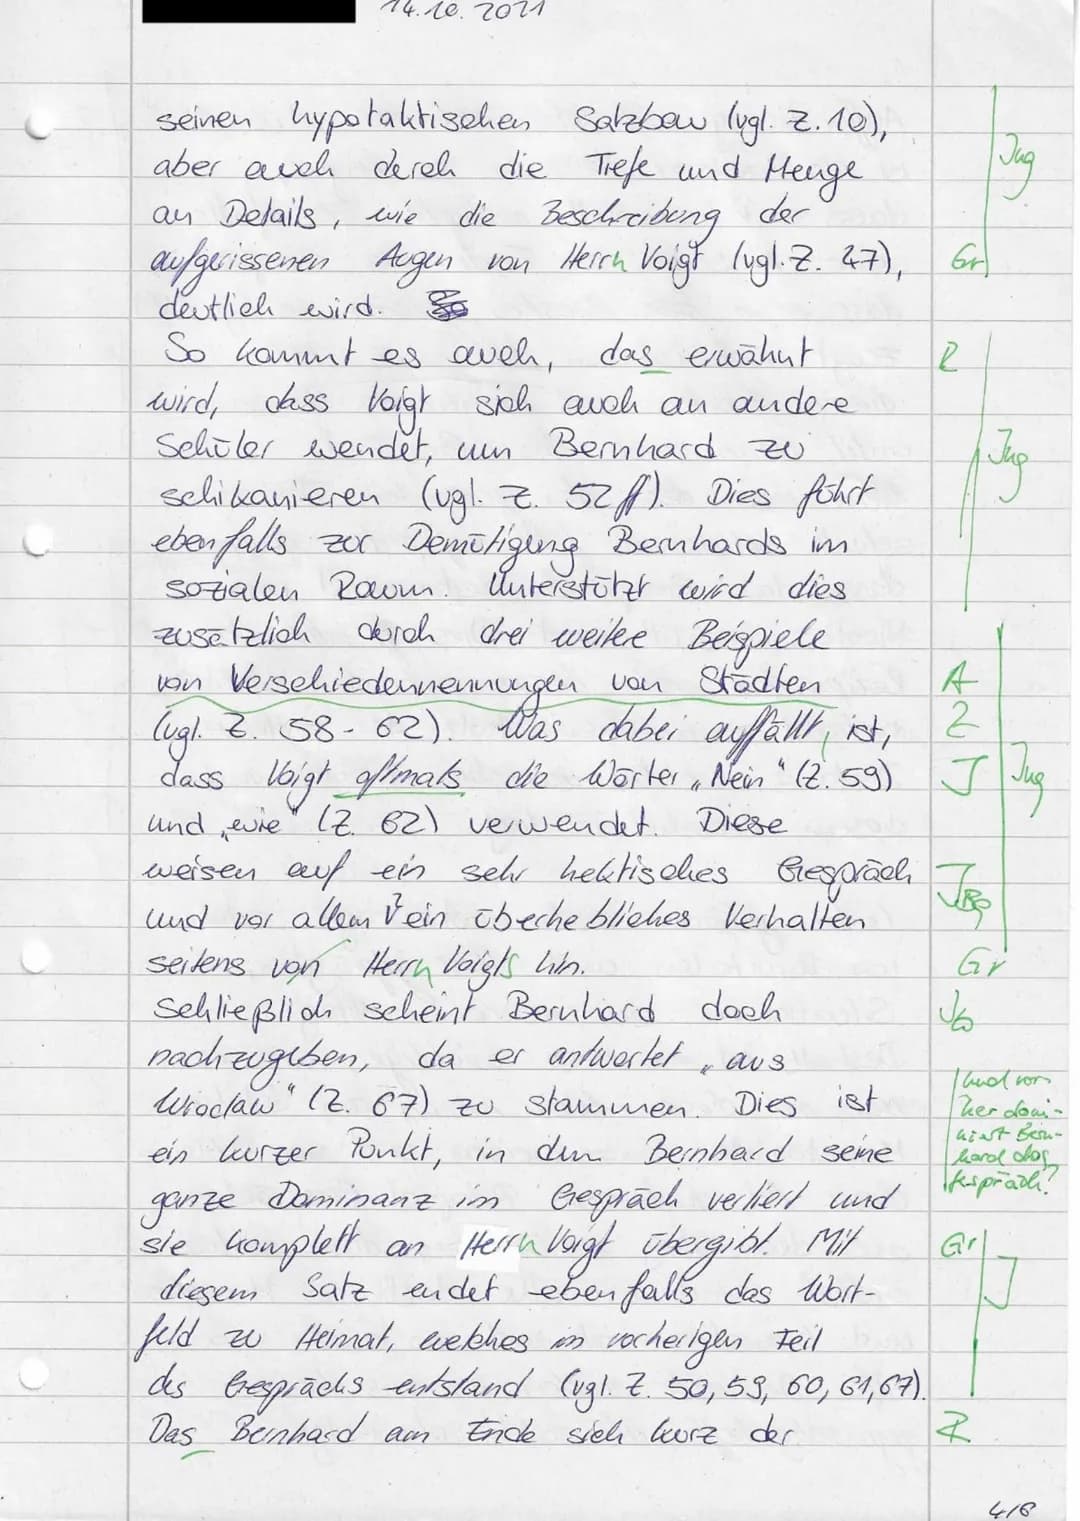 14.10.2021
seinen hypotaktischen Satzbau (vgl. Z. 10),
aber auch durch die Tiefe und Menge
an Details, wie die Beschreibung der
aufgerissenen Augen von Herrn Voigt (vgl. Z. 47), Gr
deutlich wird.
So kommt es auch, das erwähnt R
wird, dass Voigt sich auch an andere
Schüler wendet, um Bernhard zu
schikanieren (vgl. Z. 52 ff). Dies führt
ebenfalls zur Demütigung Bernhards im
sozialen Raum. Unterstützt wird dies
zusätzlich durch drei weitere Beispiele
von Verschiedennennungen von Städten A
(vgl. Z. 58-62). Was dabei auffällt, ist, Z
dass Voigt oftmals die Wörter „Nein" (Z. 59) J
und „wie" (Z. 62) verwendet. Diese
weisen auf ein sehr hektisches Gespräch
und vor allem ein überhebliches Verhalten
seitens von Herrn Voigts hin. Gr
Schließlich scheint Bernhard doch
nachzugeben, da er antwortet „aus
Wroclaw" (Z. 67) zu stammen. Dies ist
ein kurzer Punkt, in dem Bernhard seine
ganze Dominanz im Gespräch verliert und
sie komplett an Herrn Voigt übergibt. Mit Gr J
diesem Satz endet ebenfalls das Wort-
feld zu Heimat, welches im vorherigen Teil
des Gesprächs entstand (vgl. Z. 50, 59, 60, 61, 67).
Das Bernhard am Ende sich kurz der R
und vor-
her domi-
niert Bern-
hard das
Gespräch?
4/6